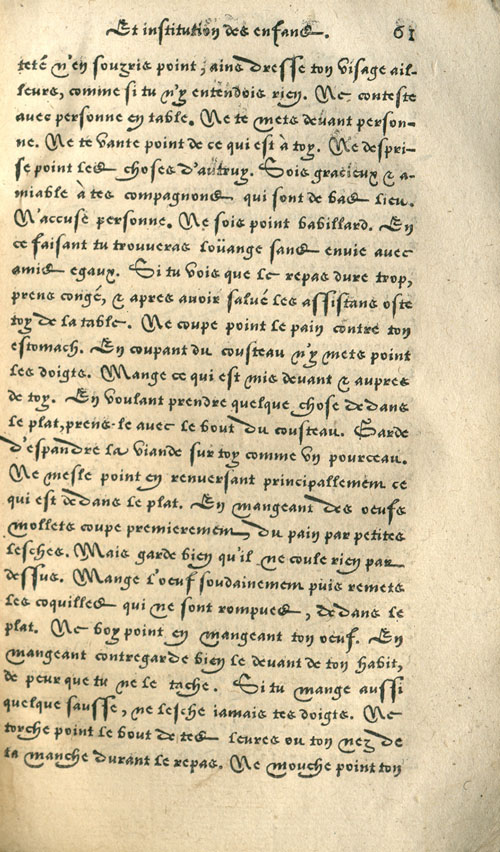 Et institution des enfans. 61
teté n'en souzris point, ains dresse ton visage ail-
leurs, comme si tu n'y entendois rien. Ne conteste
avec personne en table. Ne te mets devant person-
ne. Ne te vante point de ce qui est à toy. Ne despri-
se point les choses d'autruy. Sois gracieux & a-
miable à tes compagnons qui sont de bas lieu.
N'accuse personne. Ne sois point babillard. En
ce faisant tu trouveras loüange sans envie avec
amis egaux. Si tu vois que le repas dure trop,
prens congé, & apres avoir salué les assistans oste
toy de la table. Ne coupe point le pain contre ton
estomach. En coupant du cousteau n'y mets point
les doigts. Mange ce qui est mis devant & aupres
de toy. En voulant prendre quelque chose dedans
le plat, prens-le avec le bout du cousteau. Garde
d'espandre la viande sur toy comme vn pourceau.
Ne mesle point en renversant principallement ce
qui est dedans le plat. En mangeant des oeufs
mollets coupe premierement du pain par petites
lesches. Mais garde bien qu'il ne coule rien par
dessus. Mange l'oeuf soudainement puis remets
les coquilles qui ne sont rompues, dedans le
plat. Ne boy point en mangeant ton oeuf. En
mangeant contregarde bien le devant de ton habit,
de peur que tu ne le tache. Si tu mange aussi
quelque sausse, ne lesche iamais tes doigts. Ne
torche point le bout de tes leures ou ton nez de
ta manche durant le repas. Ne mouche point ton